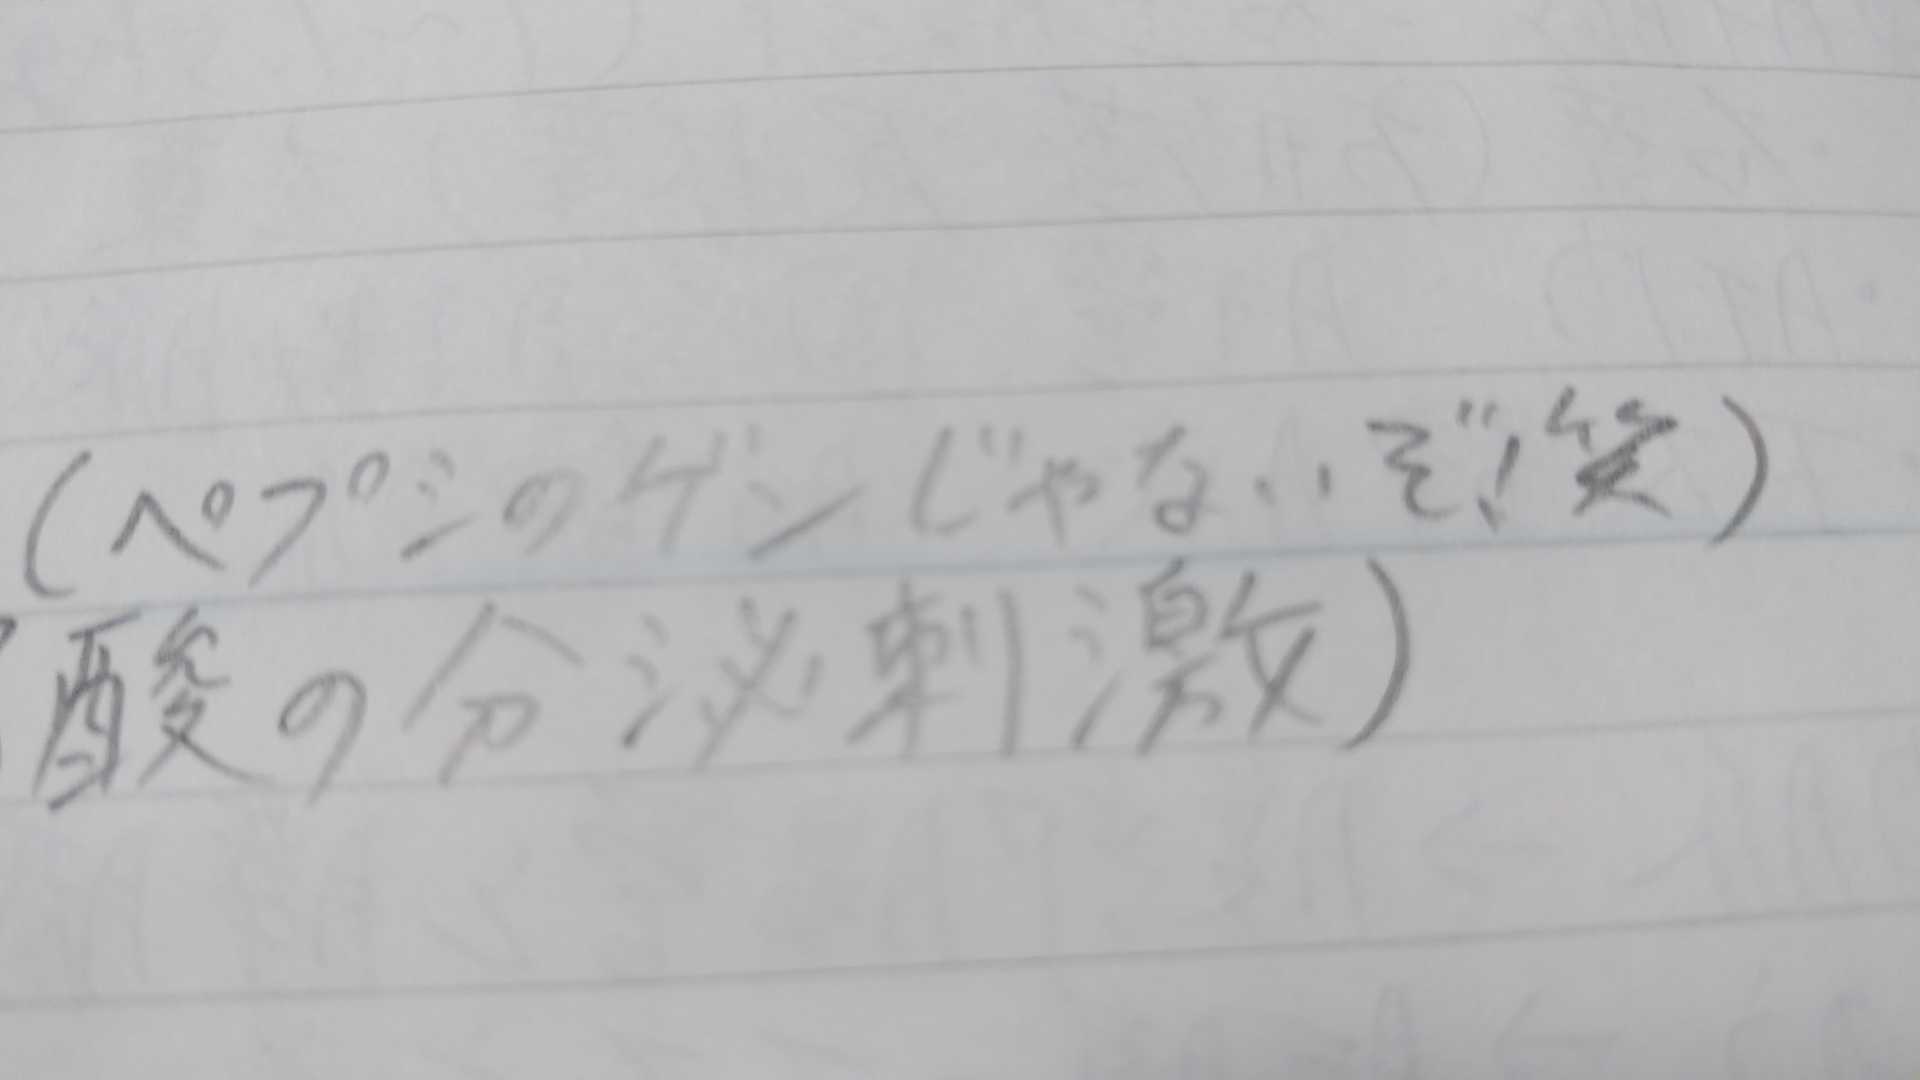 (ペプシのゲンじゃないぞ!笑)
酸の分泌刺激)